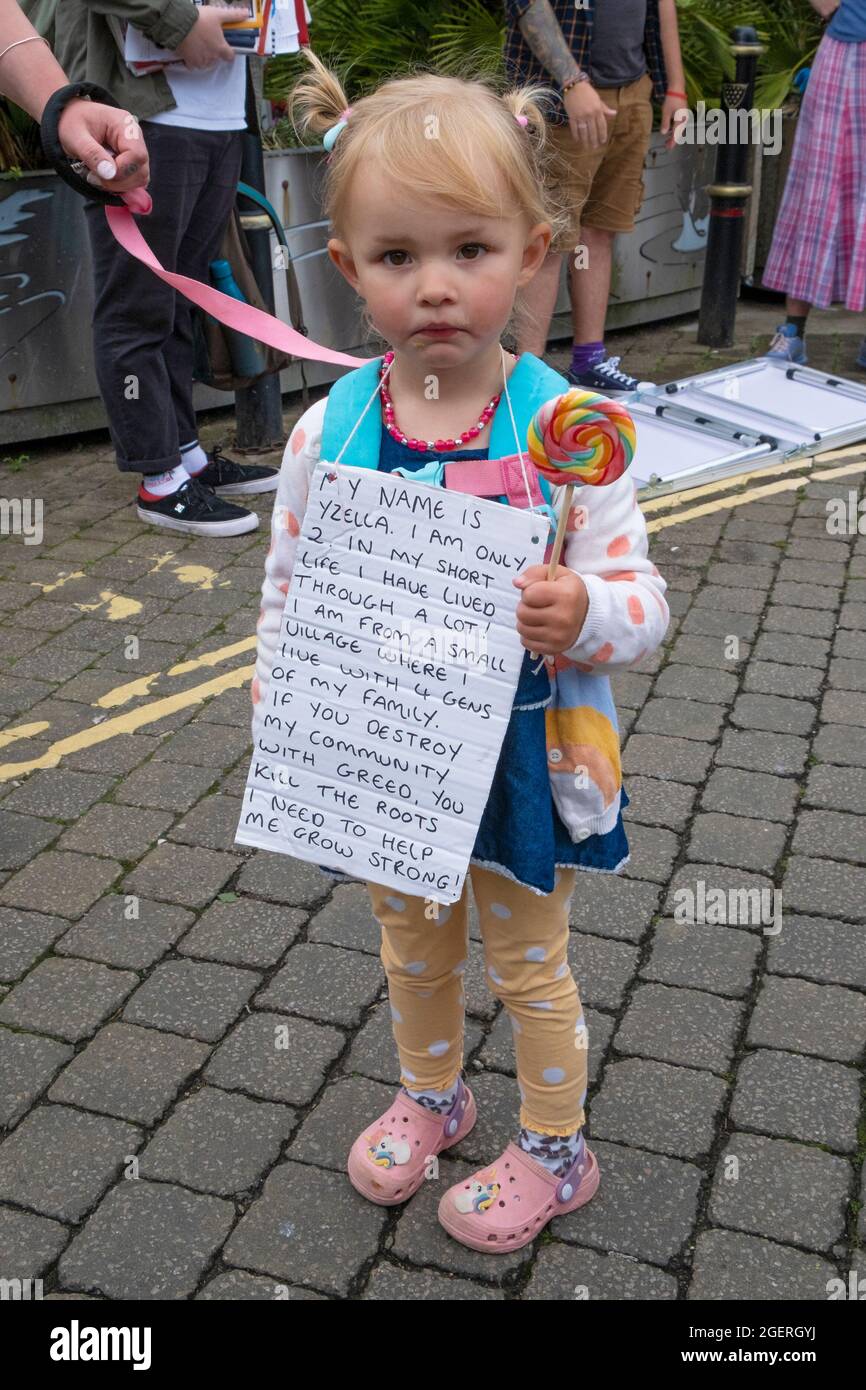 MY NAME IS
YZELLA. I AM ONLY
2 IN MY SHORT
LIFE I HAVE LIVED
THROUGH A LOT!
I AM FROM A SMALL
VILLAGE WHERE I
LIVE WITH 4 GENS
OF MY FAMILY.
IF YOU DESTROY
MY COMMUNITY
WITH GREED, YOU
KILL THE ROOTS
I NEED TO HELP
ME GROW STRONG!
alamy
Image ID: 2GERGYJ
www.alamy.com